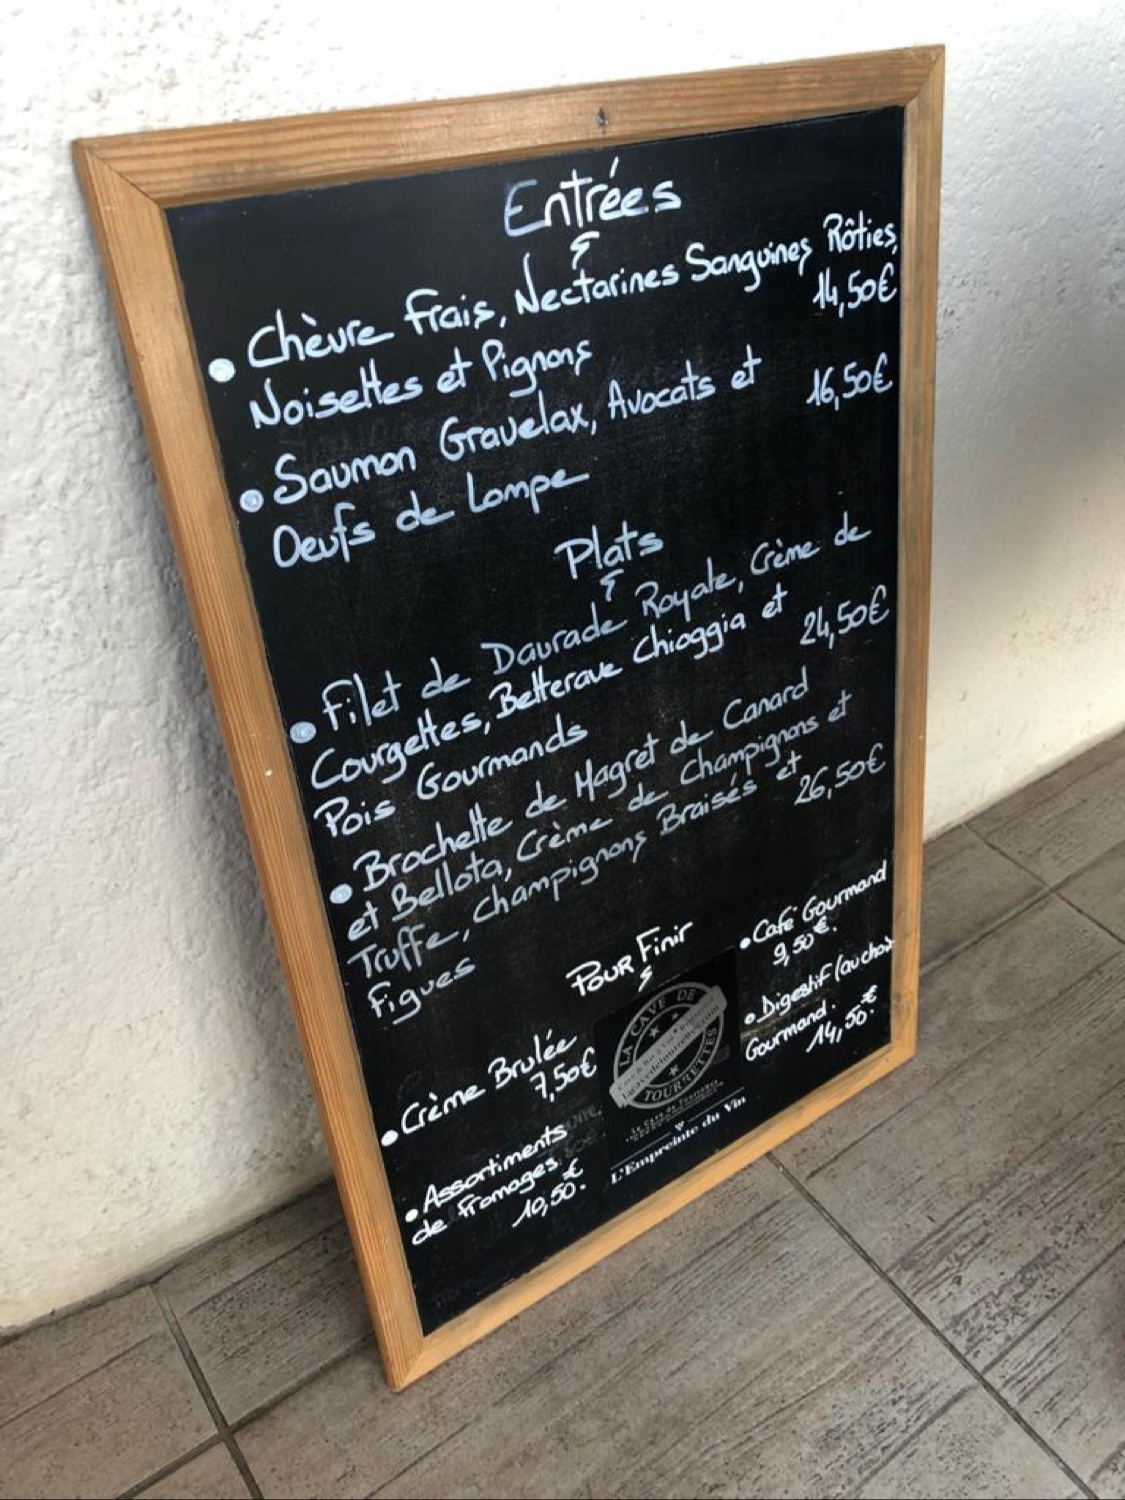 Entrées
• Chèvre Frais, Nectarines Sanguines Rôties,
Noisettes et Pignons 14,50€
• Saumon Gravelax, Avocats et 16,50€
Oeufs de Lompe
Plats
• Filet de Daurade Royale, Crème de
Courgettes, Betterave Chioggia et 24,50€
Pois Gourmands
• Brochette de Magret de Canard
et Bellota, Crème de Champignons et
Truffe, Champignons Braisés et 26,50€
Figues
Pour Finir
• Crème Brulée
7,50€
• Assortiments
de Fromages.
10,50.€
• Café Gourmand
9,50€.
• Digestif (au choix
Gourmand.
14,50.€
LA CAVE DE
TOURRETTES
La Cave de Tourrettes
L'Empreinte du Vin